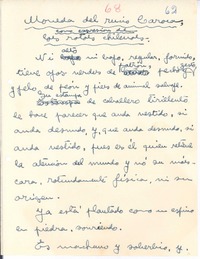 68 62
Moneda del ruin Carora,
los rotos chilenos.
Ni alto ni bajo, regular, fornido,
tiene ojos verdes de patrón, gesto
y pelo de peón y pies de animal salvaje.
de caballero tirilento
le hace parecer que anda vestido, si
anda desnudo, y, que anda desnudo, si
anda vestido, pues es él quien retiene
la atención del mundo y no su más-
cara, rotundamente física, ni su
origen.
Ya está plantado como un espino
en piedra, sonriendo.
Es machano y soberbio, y,